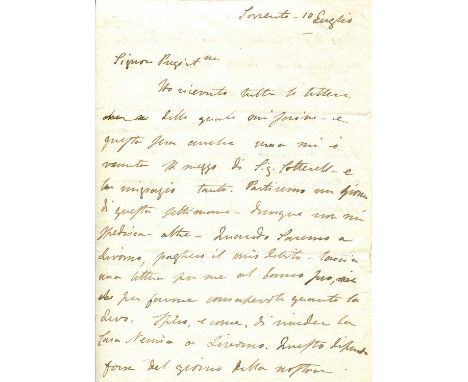 Sorrento - 10 Luglio
Signor Pregiat me
Ho ricevuto tutte le lettere
delle quali mi scrive - e
questa sera anche una mi è
venuta mezzo di Sig. Cotterell - e
La ringrazio tanto. Partiremo un giorno
di questa settimana - dunque non mi
spedisca altre - Quando saremo a
Livorno, pagherò il mio debito - lascia
una lettera per me al banco
per farne consapevole quanto la
devo. Spero, e come, di riveder la
Casa Nerina a Livorno. Questo dipende
forse del giorno della nostra